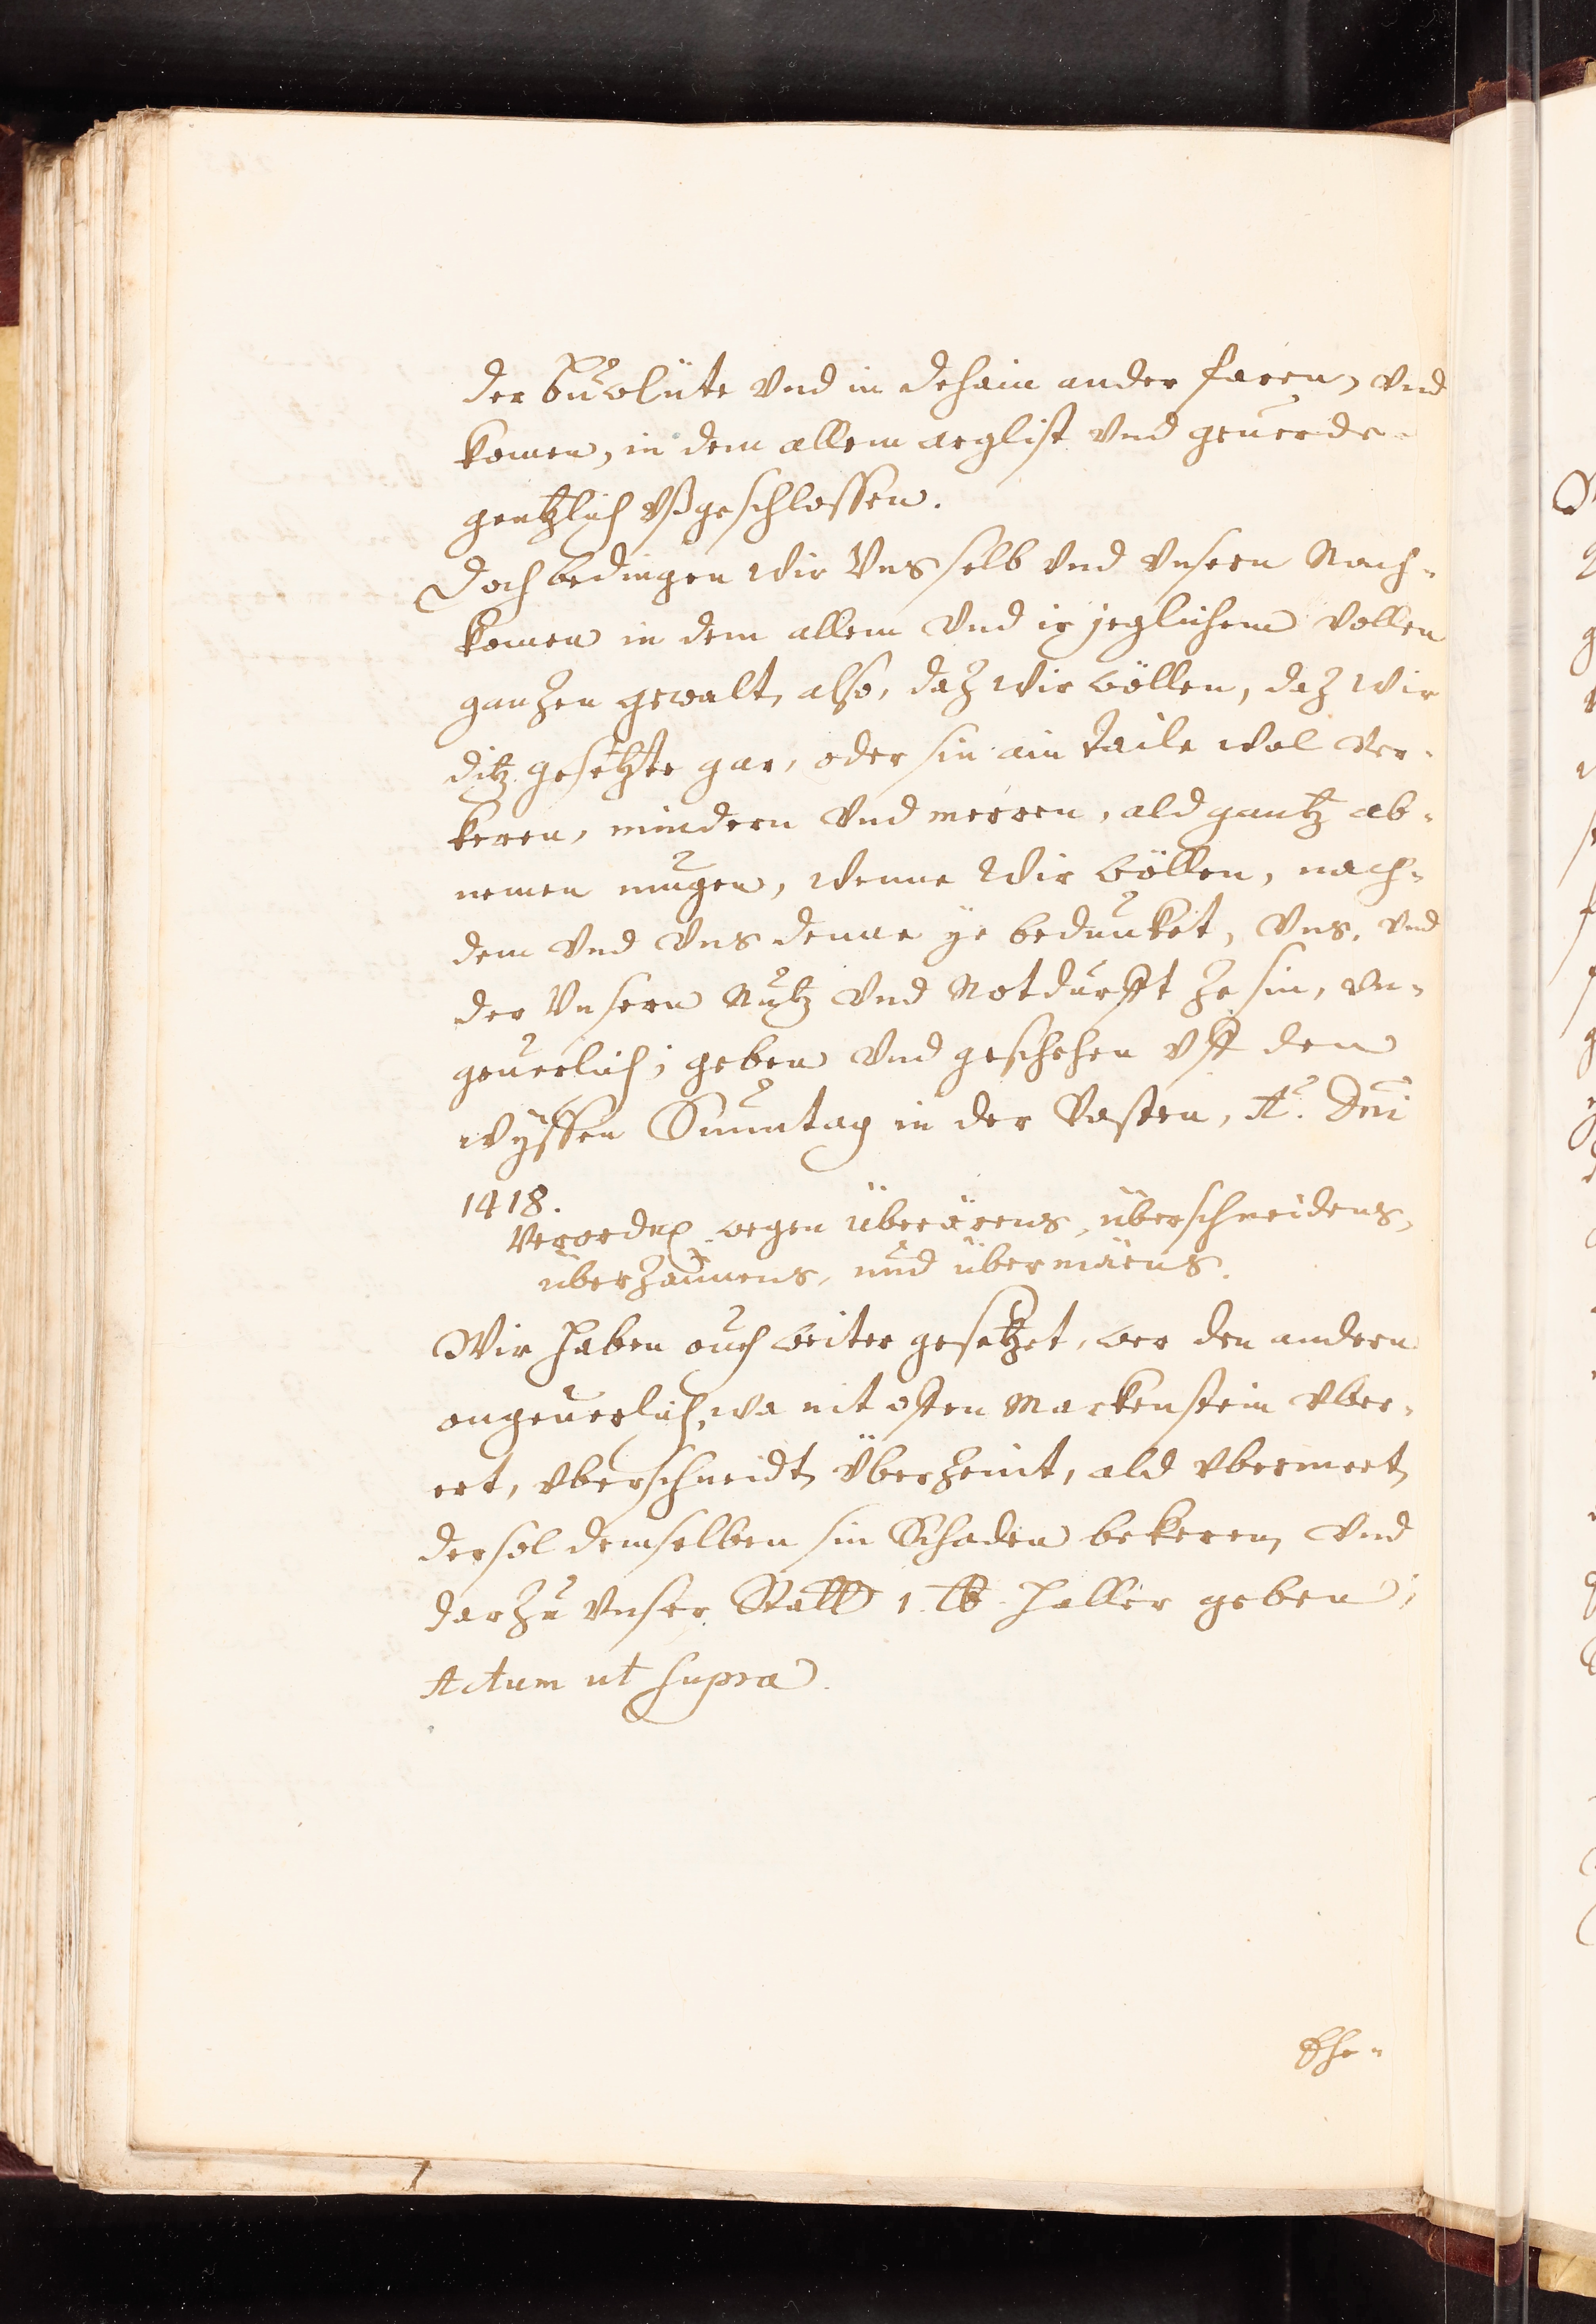 der Buwlüte vnd in dehain ander faren, vnd
komen, in dem allem arglist vnd geuerde
gentzlich vßgeschlossen.
Doch bedingen wir Vns selb vnd vnsern Nach-
komen in dem allem vnd ir jeglichem vollen
ganzen gewalt, also, daz wir wöllen, daz wir
ditz gesetzte gar, oder sin ain taile wol ver-
keren, mindern vnd merren, ald gantz ab-
nemen mugen, wenne Wir wöllen, nach-
dem vnd vns denne ye bedunket, Vns, vnd
der Vnsern Nutz vnd Notdurfft ze sin, vn-
geuerlich; geben vnd geschehen vff den
wyssen Sunntag in der Vasten, A.º Dni
1418.
Verordng wegen überärens, überschneidens,
überzaünens, und übermäens.
Wir haben ouch weiter gesetzet, wer den andern
ongeuerlich, wa nit offen Markenstein vber-
ert, vberschneidt, Überzeint, ald vbermeet,
der sol demselben sin Schaden bekeren, vnd
darzu vnser Statt 1. lb. haller geben;
Actum ut supra.
Ehe-